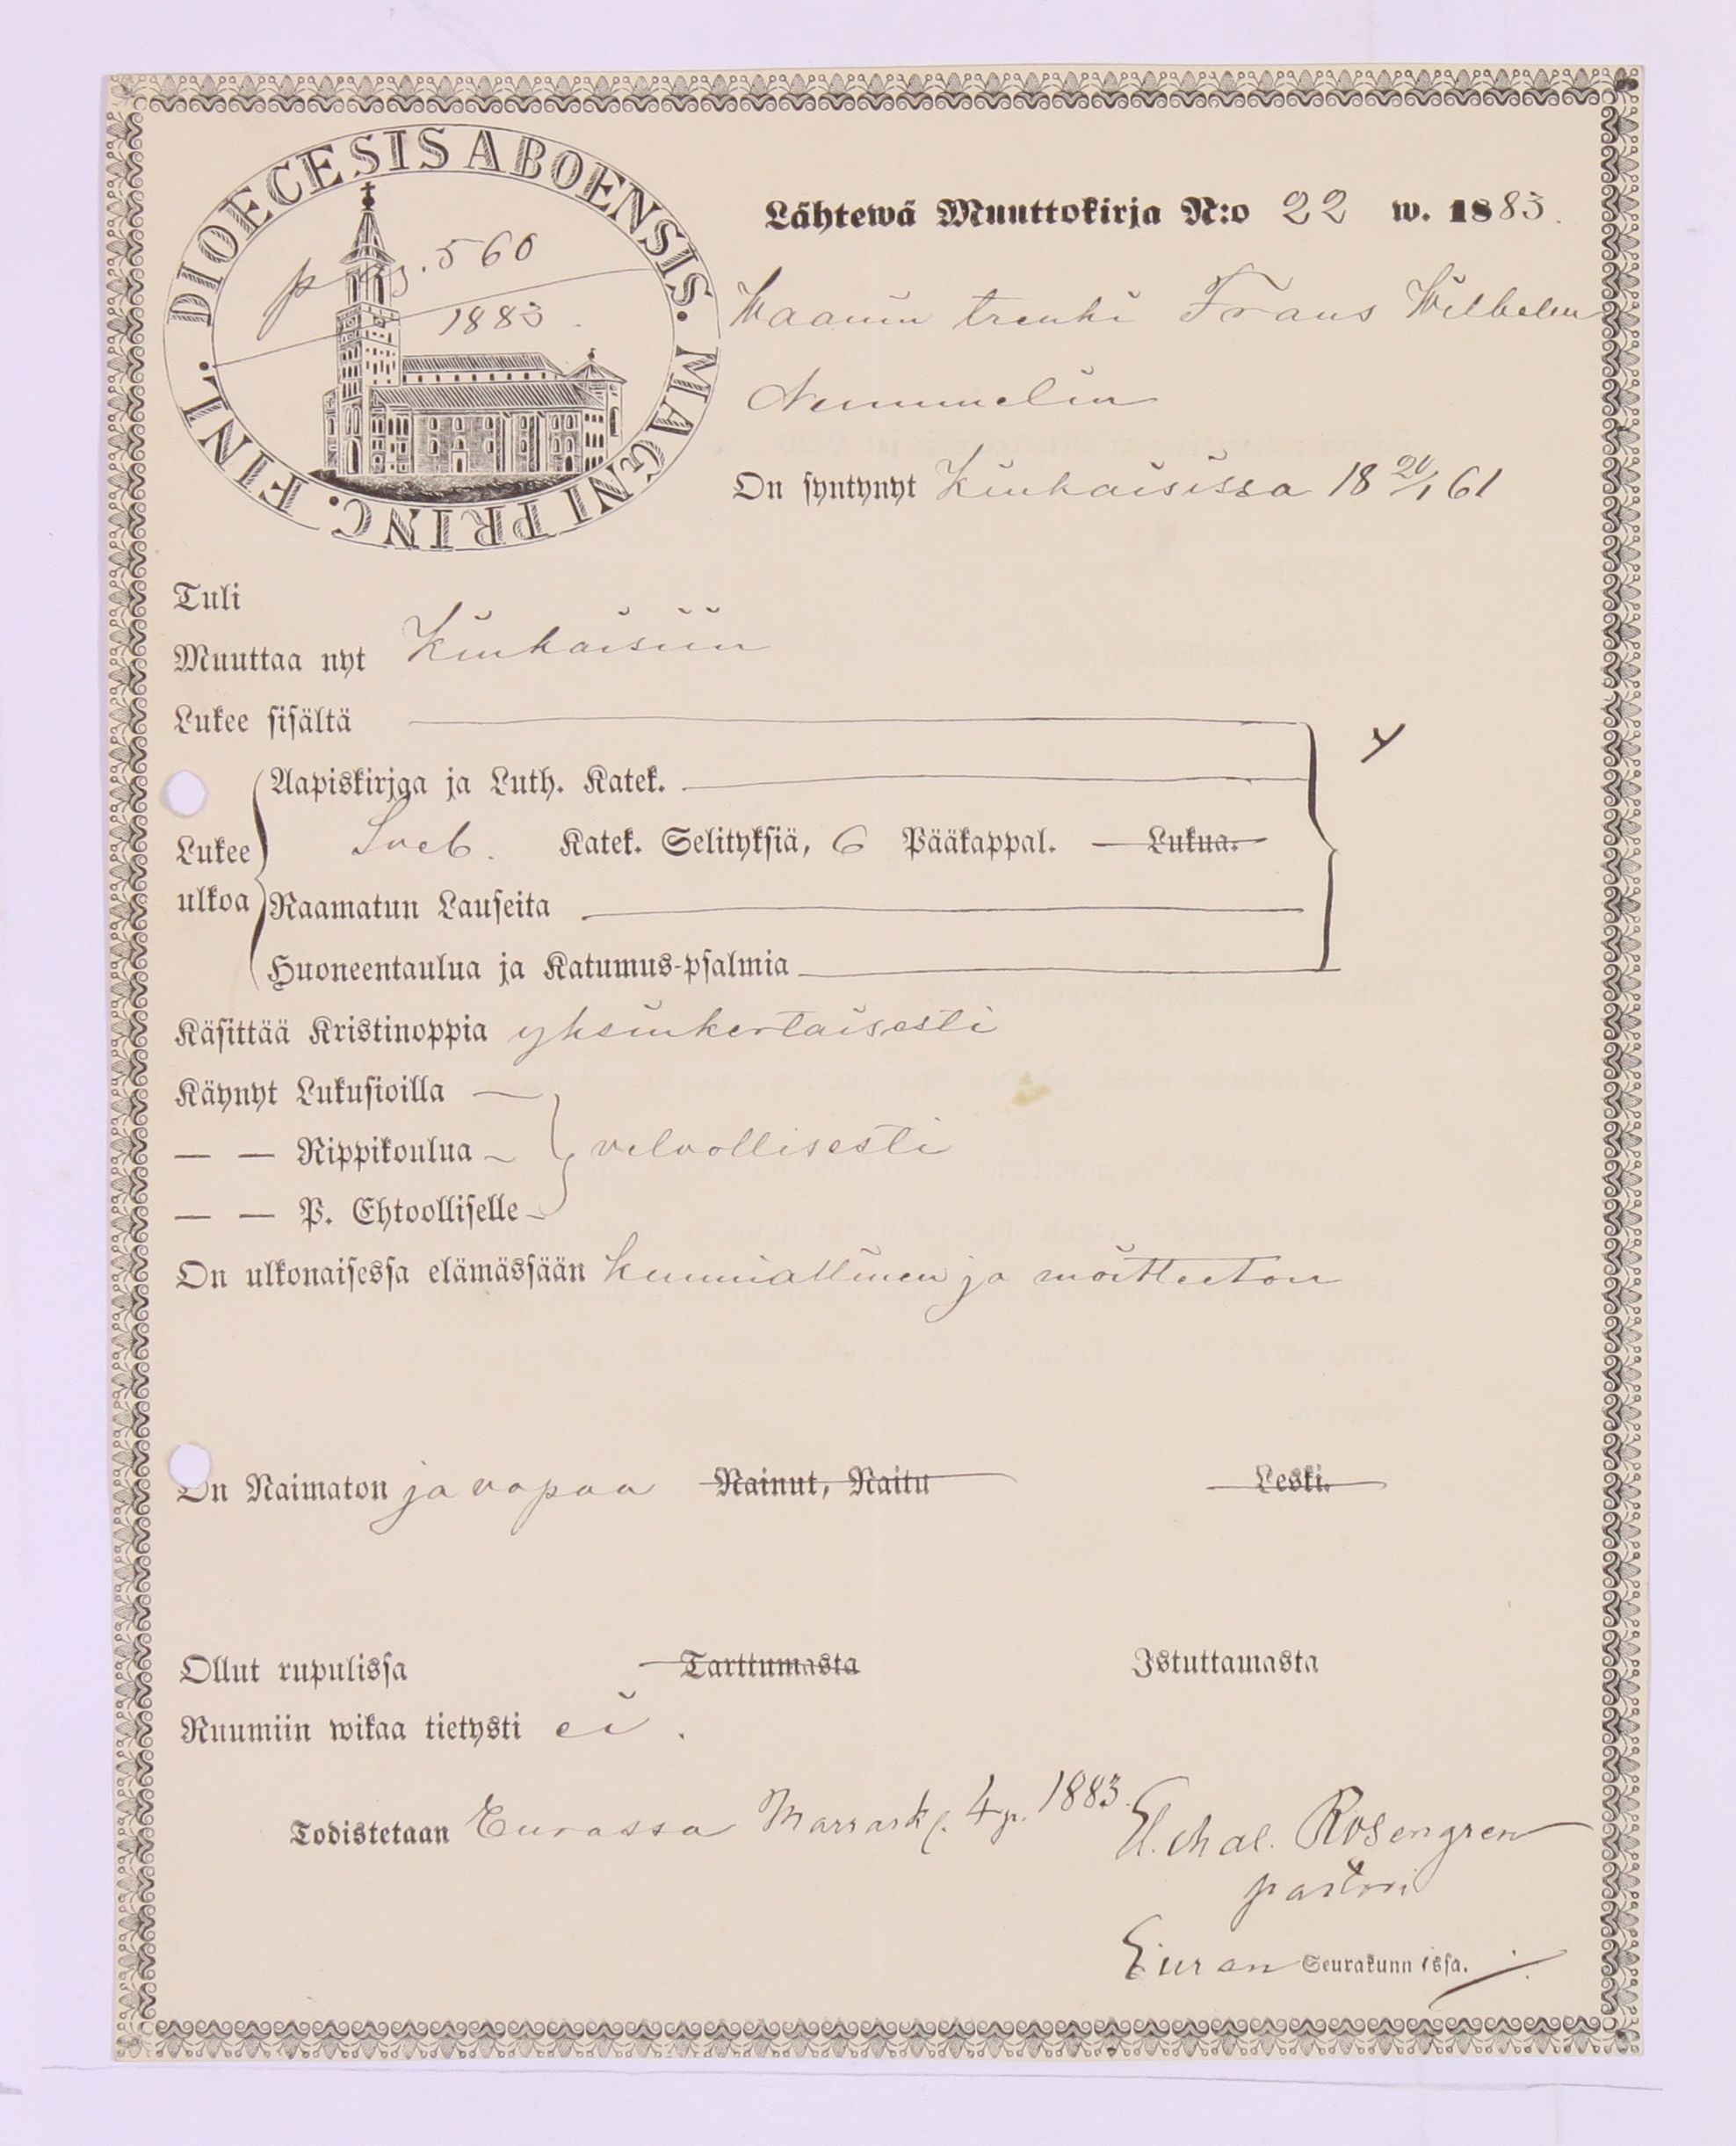 DIOECESIS ABOENSIS. MAGNI PRINC. FINL.
pag. 560
1883.
Lähtewä Muuttokirja N:o 22 w. 1883.
trenki Frans Wilhelm
Nummelin
On syntynyt Kiukaisissa 18 20/1 61
Tuli
Muuttaa nyt Kiukaisiin
Lukee sisältä
Aapiskirjaa ja Luth. Katek.
Lukee ulkoa
Sveb. Katek. Selityksiä, 6 Pääkappal. Lukua.
Raamatun Lauseita
Huoneentaulua ja Katumus-psalmia
Käsittää Kristinoppia yksinkertaisesti
Käynyt Lukusioilla
— — Rippikoulua
velvollisesti
— — P. Ehtoolliselle
On ulkonaisessa elämässään kunniallinen ja moitteeton
On Naimaton ja vapaa Nainut, Naitu Leski.
Ollut rupulissa Tarttumasta Istuttamasta
Ruumiin wikaa tietysti ei.
Todistetaan Eurassa Marrask. 4 p. 1883.
Rosengren
pastori
Euran Seurakunnissa.